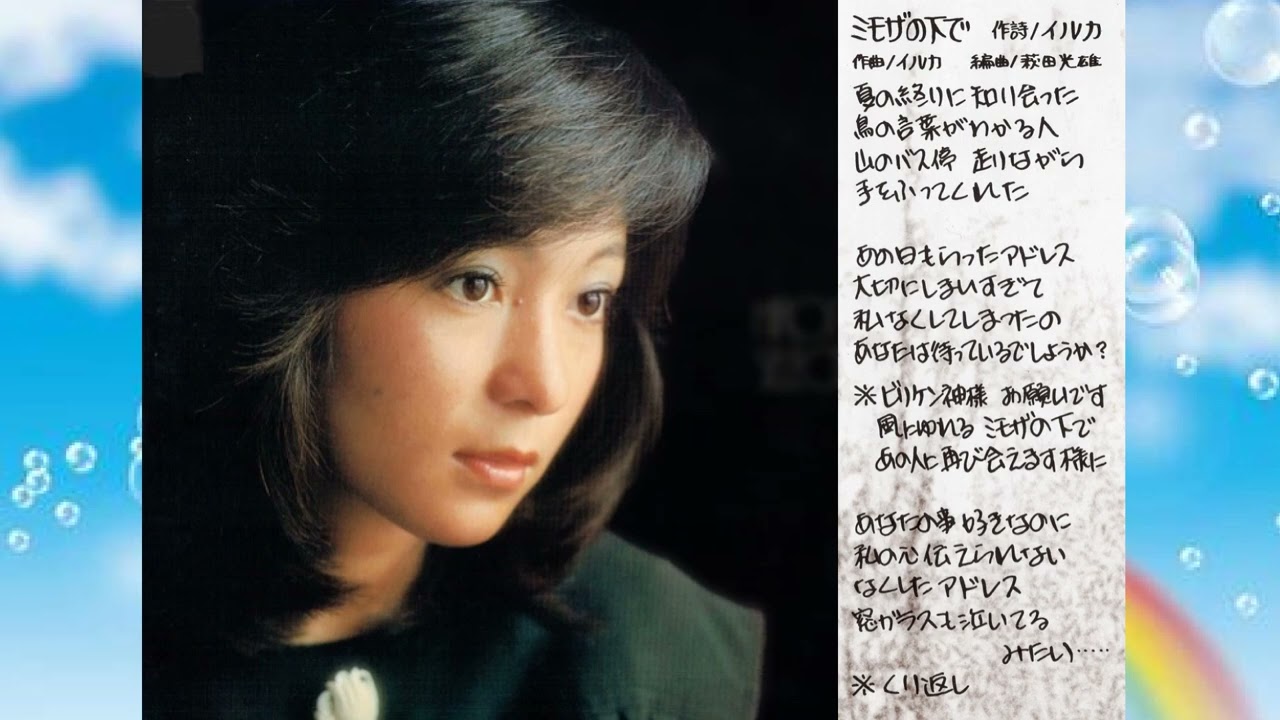 ミモザの下で 作詩/イルカ
作曲/イルカ 編曲/萩田光雄
夏の終りに知り会った
鳥の言葉がわかる人
山のバス停 走りながら
手をふってくれた
あの日もらったアドレス
大切にしまいすぎて
私なくしてしまったの
あなたは待っているでしょうか?
※ビリケン神様 お願いです
風にゆれる ミモザの下で
あの人に再び会えるす様に
あなたの事好きなのに
私の心伝えられない
なくしたアドレス
窓ガラスも泣いてる
みたい・・・・・
※くり返し